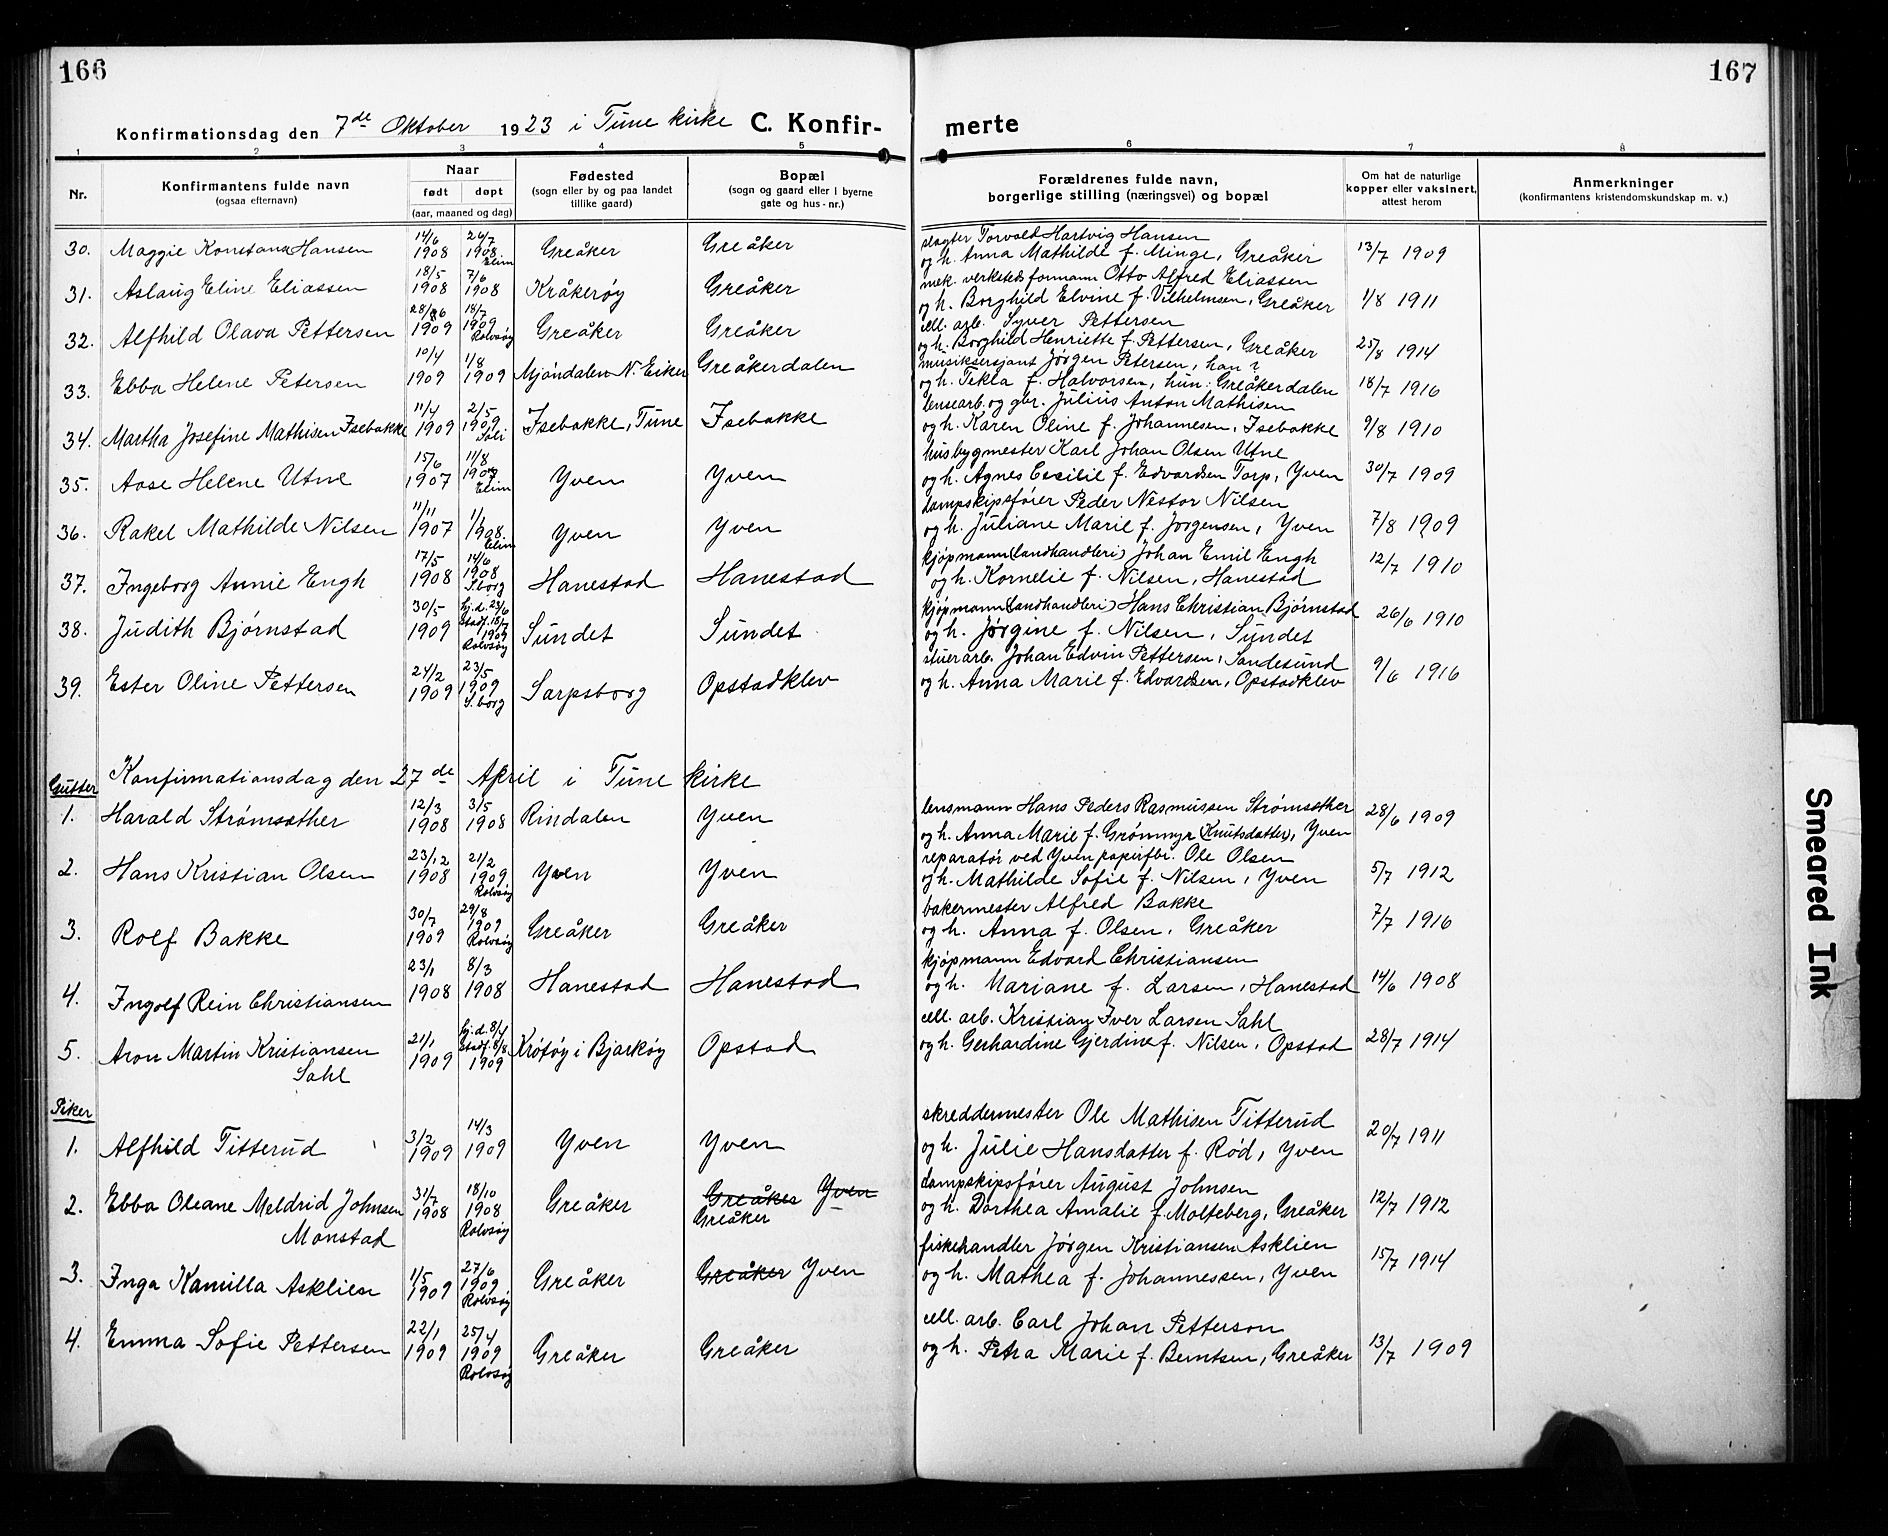 166
167
Konfirmationsdag den 7de Oktober 1923 i Tune kirke C. Konfir-
merte
1 2 3 4 5 6 7 8
Nr.
Konfirmantens fulde navn
(ogsaa efternavn)
Naar
født døpt
(aar, maaned og dag)
Fødested
(sogn eller by og paa landet
tillike gaard)
Bopæl
(sogn og gaard eller i byerne
gate og hus-nr.)
Forældrenes fulde navn,
borgerlige stilling (næringsvei) og bopæl
Om hat de naturlige
kopper eller vaksinert,
attest herom
Anmerkninger
(konfirmantens kristendomskundskap m. v.)
30. Maggie Konstanse Hansen 14/6 1908 26/7 1908 Elim Greåker Greåker
slagter Torvald Hartvig Hansen
og h. Anna Mathilde f. Minge, Greåker 13/7 1909
31. Aslaug Eline Eliassen 18/5 1908 7/6 1908 Kråkerøy Greåker
mek. verksteds formann Otto Alfred Eliassen
og h. Borghild Elvine f. Vilhelmsen, Greåker 1/8 1911
32. Alfhild Olava Pettersen 1909 18/7 1909 Rolvsøy Greåker Greåker
cell. arb. Syver Pettersen
og h. Borghild Henriette f. Pettersen, Greåker 25/8 1914
33. Ebba Helene Petersen 10/4 1909 1/8 1909 Mjøndalen N. Eiker Greåkerdalen
musiksersjant Jørgen Petersen, han ?
og h. Tekla f. Halvorsen, hun: Greåkerdalen 18/7 1916
34. Martha Josefine Mathisen Isebakke 11/4 1909 2/5 1909 Soli Isebakke, Tune Isebakke
lensearb. og gbr. Julius Anton Mathisen
og h. Karen Oline f. Johannesen, Isebakke 9/8 1910
35. Aase Helene Utne 15/6 1907 11/8 1907 Elim Yven Yven
husbygmester Karl Johan Olsen Utne
og h. Agnes Cecilie f. Edvardsen Torp, Yven 30/7 1909
36. Rakel Mathilde Nilsen 11/11 1907 1/1 1908 Elim Yven Yven
dampskipsfører Peder Nestor Nilsen
og h. Juliane Marie f. Jørgensen, Yven 7/8 1909
37. Ingeborg Annie Engh 17/5 1908 14/6 1908 S.borg Hanestad Hanestad
kjøpmann (landhandleri) Johan Emil Engh
og h. Kornelie f. Nilsen, Hanestad 12/7 1910
38. Judith Bjørnstad 30/5 1909 hj.d. 23/6 Stadf. 18/7 1909 Rolvsøy Sundet Sundet
kjøpmann (landhandleri) Hans Christian Bjørnstad
og h. Jørgine f. Nilsen, Sundet 26/6 1910
39. Ester Oline Pettersen 24/2 1909 23/5 1909 S.borg Sarpsborg Opstadklev
stuerarb. Johan Edvin Pettersen, Sandesund
og h. Anna Marie f. Edvardsen, Opstadklev 9/6 1916
Konfirmationsdag den 27de April i Tune kirke
Gutter
1. Harald Strømsæther 12/3 1908 3/5 1908 Rindalen Yven
lensmann Hans Peders Rasmussen Strømsæther
og h. Anna Marie f. Grønmyr (Knutsdatter), Yven 28/6 1909
2. Hans Kristian Olsen 23/12 1908 21/2 1909 Rolvsøy Yven Yven
reparatør ved Yven papirfbr. Ole Olsen
og h. Mathilde Sofie f. Nilsen, Yven 5/7 1912
3. Rolf Bakke 30/7 1909 29/8 1909 Rolvsøy Greåker Greåker
bakermester Alfred Bakke
og h. Anna f. Olsen, Greåker 7/7 1916
4. Ingolf Rein Christiansen 23/1 1908 8/3 1908 Hanestad Hanestad
kjøpmann Edvard Christiansen
og h. Mariane f. Larsen, Hanestad 14/6 1908
5. Aron Martin Kristiansen Sahl 21/1 1909 hj.d. 8/4 Stadf. 8/8 1909 Krøtøy i Bjarkøy Opstad
cell. arb. Kristian Iver Larsen Sahl
og h. Gerhardine Gjerdine f. Nilsen, Opstad 28/7 1914
Piker
1. Alfhild Titterud 3/2 1909 14/3 1909 Yven Yven
skreddermester Ole Mathisen Titterud
og h. Julie Hansdatter f. Rød, Yven 20/7 1911
2. Ebba Oleane Meldrid Johnsen Monstad 31/7 1908 18/10 1908 Rolvsøy Greåker Greåker Yven Greåker
dampskipsfører August Johnsen
og h. Dorthea Amalie f. Molteberg, Greåker 12/7 1912
3. Inga Kamilla Asklien 1/5 1909 27/6 1909 Rolvsøy Greåker Greåker Yven
fiskehandler Jørgen Kristiansen Asklien
og h. Mathea f. Johannessen, Yven 15/7 1914
4. Emma Sofie Pettersen 22/1 1909 25/4 1909 Rolvsøy Greåker Greåker
cell. arb. Carl Johan Petterson
og h. Petra Marie f. Berntsen, Greåker 13/7 1909
Smeared Ink